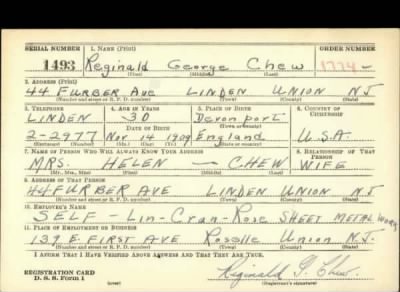 SERIAL NUMBER 1. NAME (Print) ORDER NUMBER
1493 Reginald George Chew 1774-
(First) (Middle) (Last)
2. ADDRESS (Print)
44 FURBER AVE LINDEN UNION NJ
(Number and street or R. F. D. number) (Town) (County) (State)
3. TELEPHONE 4. AGE IN YEARS 5. PLACE OF BIRTH 6. COUNTRY OF CITIZENSHIP
LINDEN 30 Devonport
(Town or county)
2-2977 Nov 14 1909 England U.S.A.
7. NAME OF PERSON WHO WILL ALWAYS KNOW YOUR ADDRESS 8. RELATIONSHIP OF THAT PERSON
MRS. HELEN — CHEW WIFE
(Mr., Mrs., Miss) (First) (Middle) (Last)
9. ADDRESS OF THAT PERSON
44 FURBER AVE LINDEN UNION NJ
(Number and street or R. F. D. number) (Town) (County) (State)
10. EMPLOYER'S NAME
SELF - Lin-Cran-Rose SHEET METAL Work
11. PLACE OF EMPLOYMENT OR BUSINESS
139 E. FIRST AVE Roselle Union N.J.
(Number and street or R. F. D. number) (Town) (County) (State)
I AFFIRM THAT I HAVE VERIFIED ABOVE ANSWERS AND THAT THEY ARE TRUE.
REGISTRATION CARD
D. S. S. Form 1
Reginald G. Chew
(Registrant's signature)